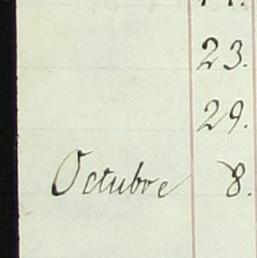 23.
29.
Octubre 8.